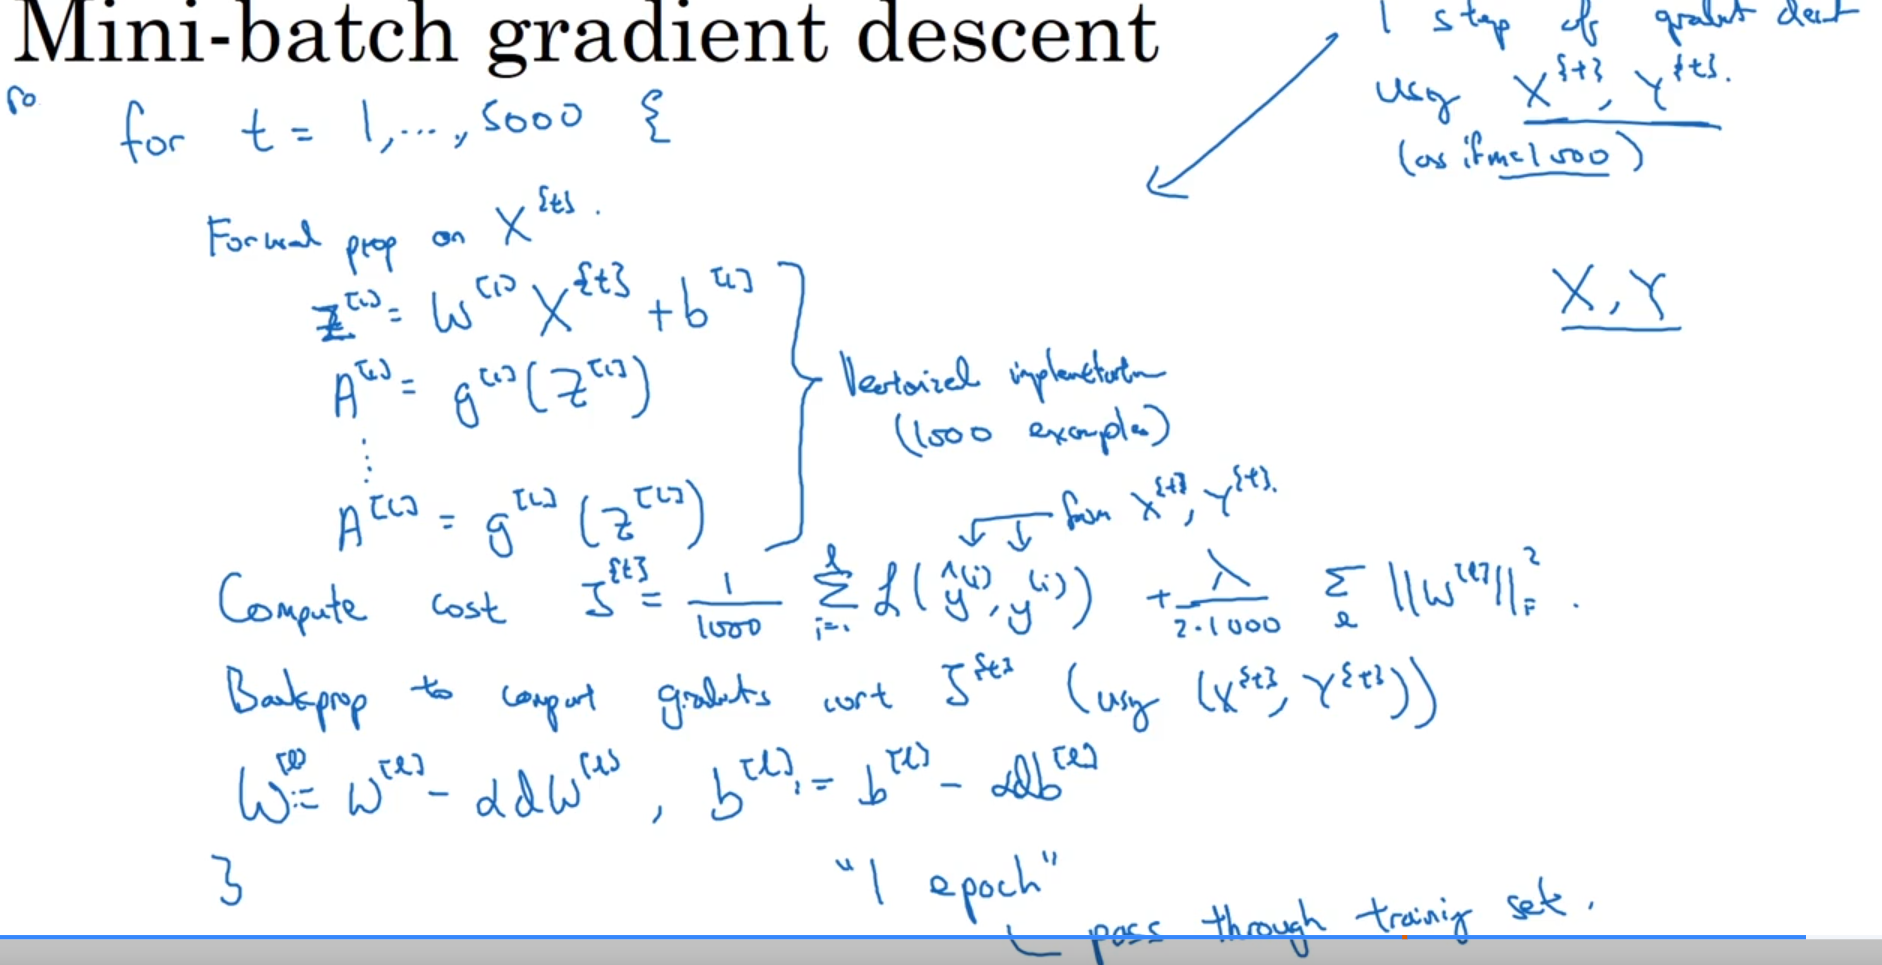 Mini-batch gradient descent
1 step of gradient descent
using X^{t}, Y^{t}.
(as if m=1000)
for t = 1,...,5000 {
Forward prop on X^{t}.
Z^[1] = W^[1] X^{t} + b^[1]
A^[1] = g^[1](Z^[1])
⋮
A^[L] = g^[L](Z^[L])
Vectorized implementation
(1000 examples)
X, Y
from X^{t}, Y^{t}.
Compute cost J^{t} = 1/1000 Σ_{i=1}^{l} L(ŷ^(i), y^(i)) + λ/(2·1000) Σ_l ||W^[l]||_F^2.
Backprop to compute gradients wrt J^{t} (using (X^{t}, Y^{t}))
W^[l] := W^[l] - αdW^[l], b^[l] := b^[l] - αdb^[l]
}
"1 epoch"
pass through training set.